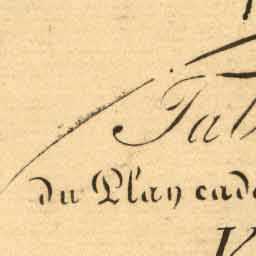 Tab
du Plan cada
V